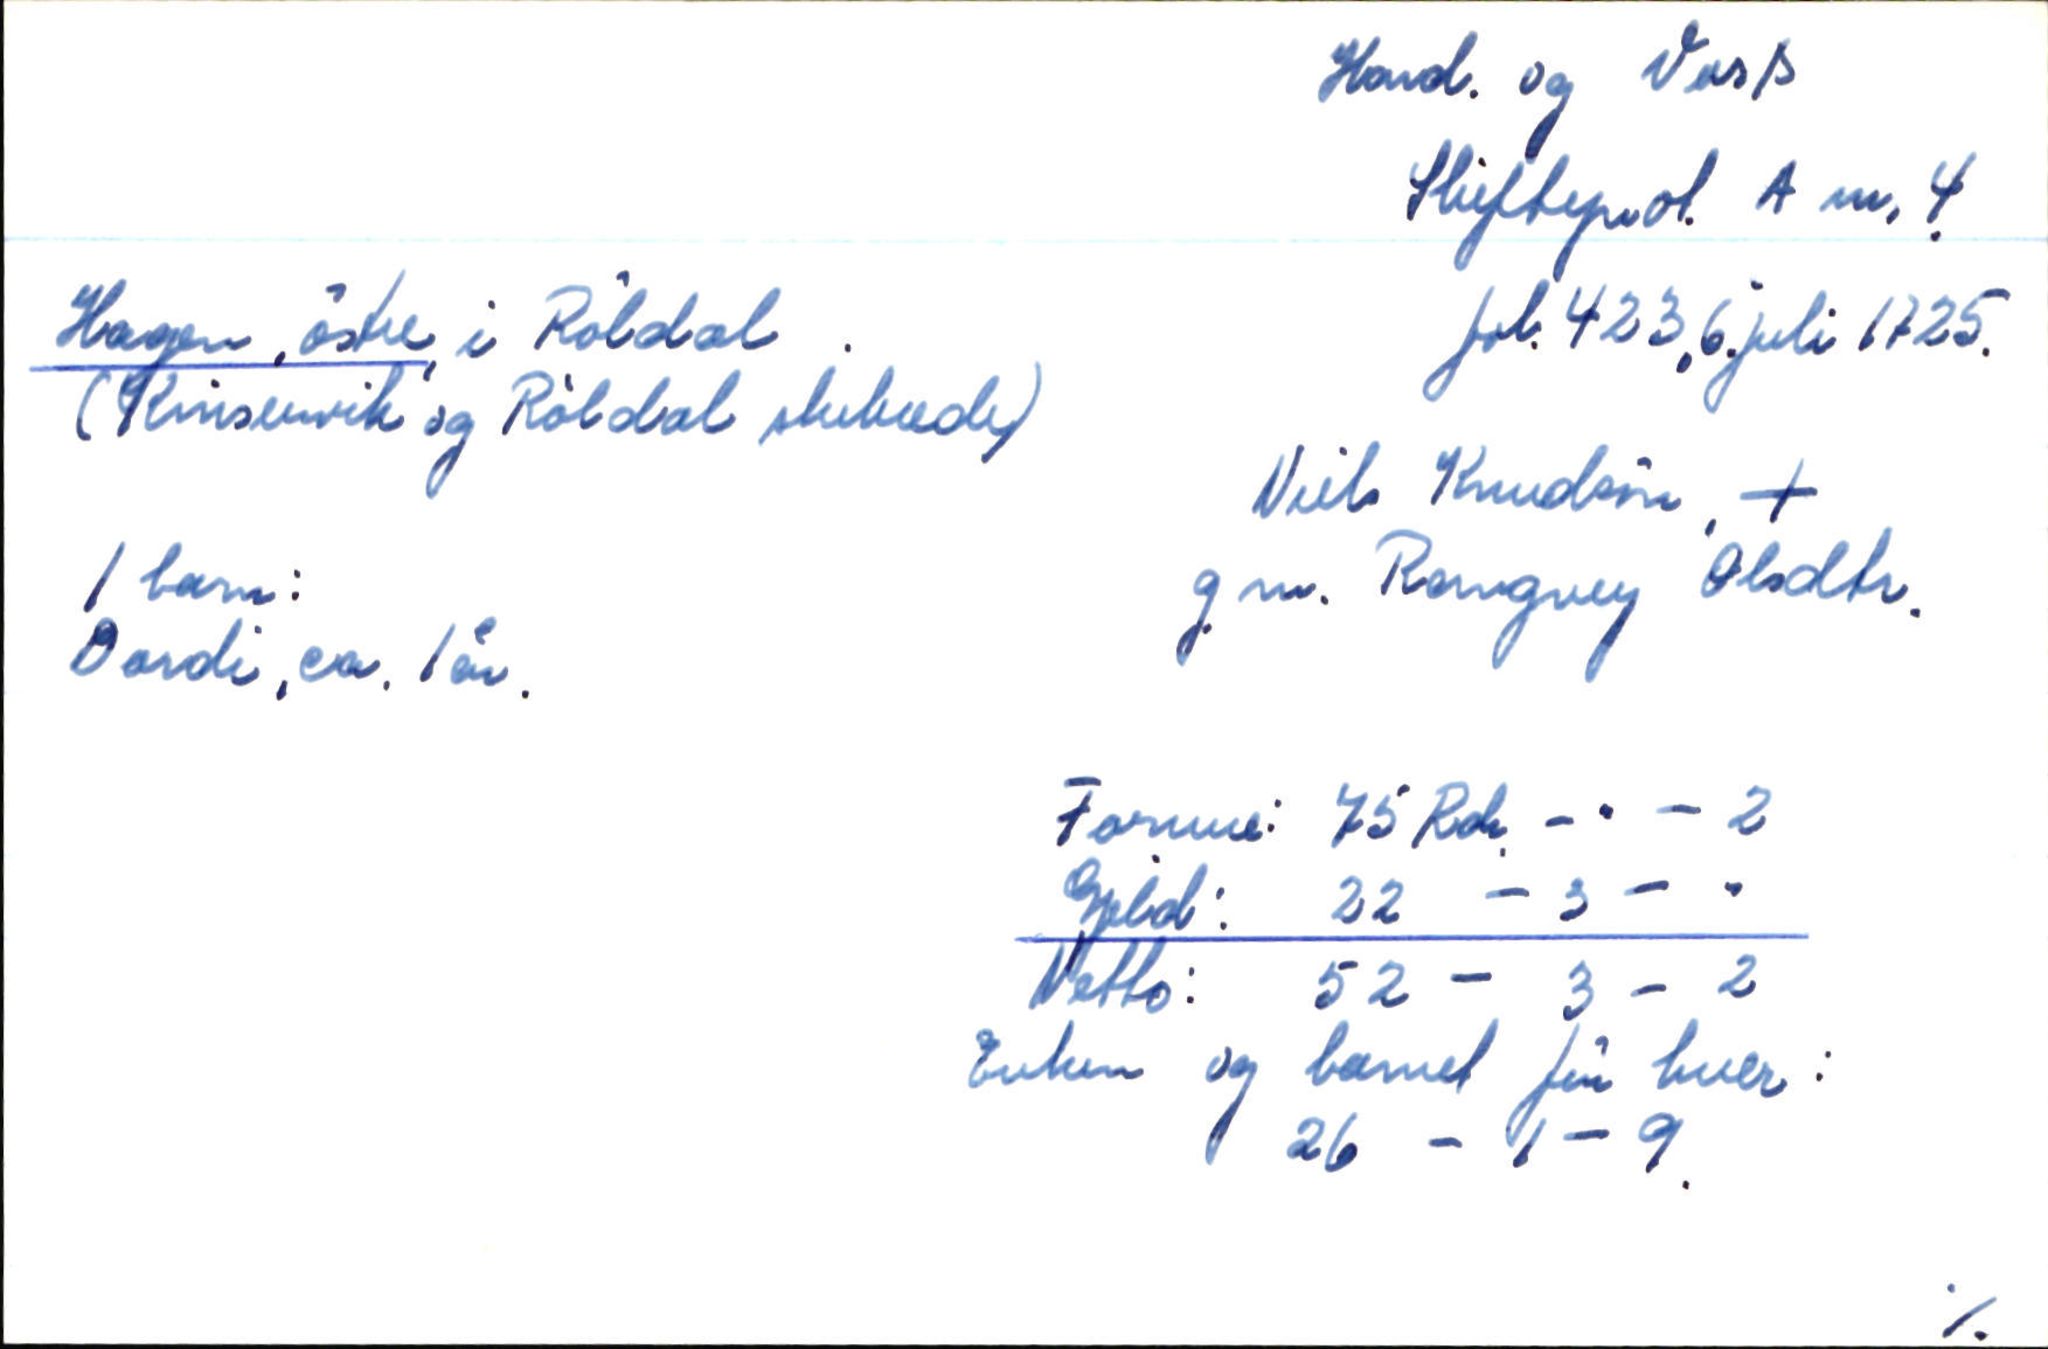 Hard. og Voss
Skifteprot. A nr. 4
fol. 423, 6. juli 1725.
Hagen, östre, i Röldal.
(Kinservik og Röldal skibrede)
Niels Knudsön, +
g.m. Rangvey Olsdtr.
1 barn:
Dordi, ca. 1 år.
Formue: 75 Rdr. - " - 2
Gjeld: 22 - 3 - "
Netto: 52 - 3 - 2
Enken og barnet får hver:
26 - 1 - 9.
·/.